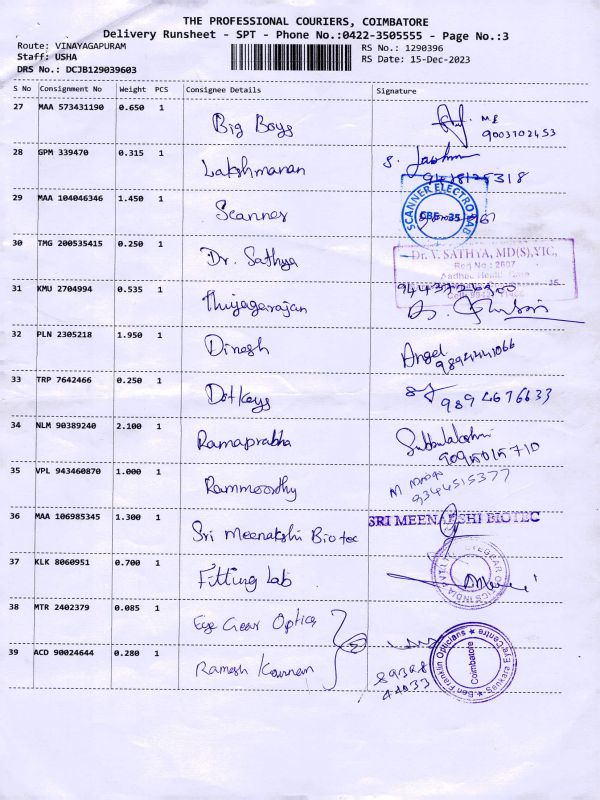 THE PROFESSIONAL COURIERS, COIMBATORE
Delivery Runsheet - SPT - Phone No.:0422-3505555 - Page No.:3
Route: VINAYAGAPURAM
Staff: USHA
DRS No.: DCJB129039603
RS No.: 1290396
RS Date: 15-Dec-2023
S No Consignment No Weight PCS Consignee Details Signature
27 MAA 573431190 0.650 1 Big Boys
9003102453
28 GPM 339470 0.315 1 Lakshmanan
29 MAA 104046346 1.450 1 Scanner
SCANNER ELECTRO LAB
CBE-35
30 TMG 200535415 0.250 1 Dr. Sathya
Dr. V. SATHYA, MD(S),YIC,
Reg No : 2607
31 KMU 2704994 0.535 1 Thiyagarajan
32 PLN 2305218 1.950 1 Dinesh Angel
9894441066
33 TRP 7642466 0.250 1 Dotkeys
9894676633
34 NLM 90389240 2.100 1 Ramaprabha Subbulakshmi
35 VPL 943460870 1.000 1 Rammoorthy
9344515377
36 MAA 106985345 1.300 1 Sri Meenakshi Biotec
SRI MEENAKSHI BIOTEC
37 KLK 8060951 0.700 1 Fitting Lab
38 MTR 2402379 0.085 1 Eye Gear Optics
39 ACD 90024644 0.280 1 Ramesh Kannan
89328
44033
Ben Franklin Opticians
Eye Centre
Coimbatore